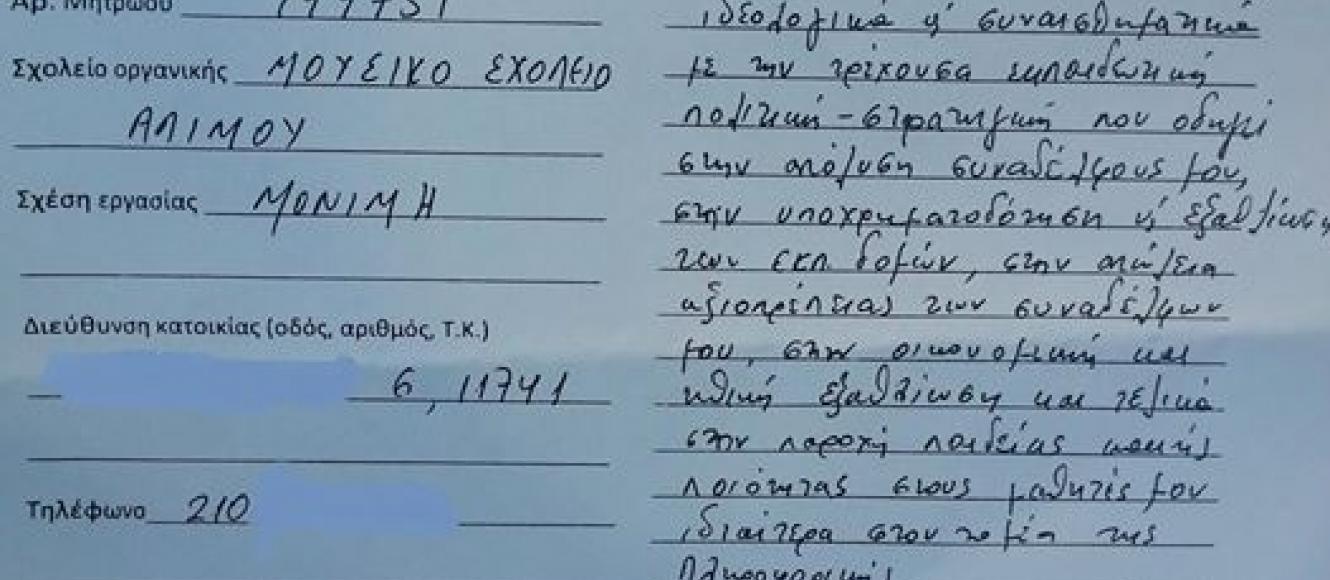 Αρ. Μητρώου
Σχολείο οργανικής ΜΟΥΣΙΚΟ ΣΧΟΛΕΙΟ
ΑΛΙΜΟΥ
Σχέση εργασίας ΜΟΝΙΜΗ
Διεύθυνση κατοικίας (οδός, αριθμός, Τ.Κ.)
6, 11741
Τηλέφωνο 210
ιδεολογικά ή συναισθηματικά
με την τρέχουσα εκπαιδευτική
πολιτική - στρατηγική που οδηγεί
στην απόλυση συναδέλφους μου,
στην υποχρηματοδότηση ή εξαθλίωση
των εκπ δομών, στην απώλεια
αξιοπρέπειας των συναδέλφων
μου, στην οικονομική και
ηθική εξαθλίωση και τελικά
στην παροχή παιδείας κακής
ποιότητας στους μαθητές μου
ιδιαίτερα στον τομέα της
Πληροφορικής!